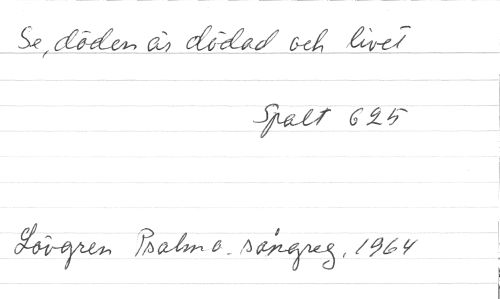 Se, döden är dödad och livet
Spalt 625
Lövgren Psalm o. sångreg. 1964